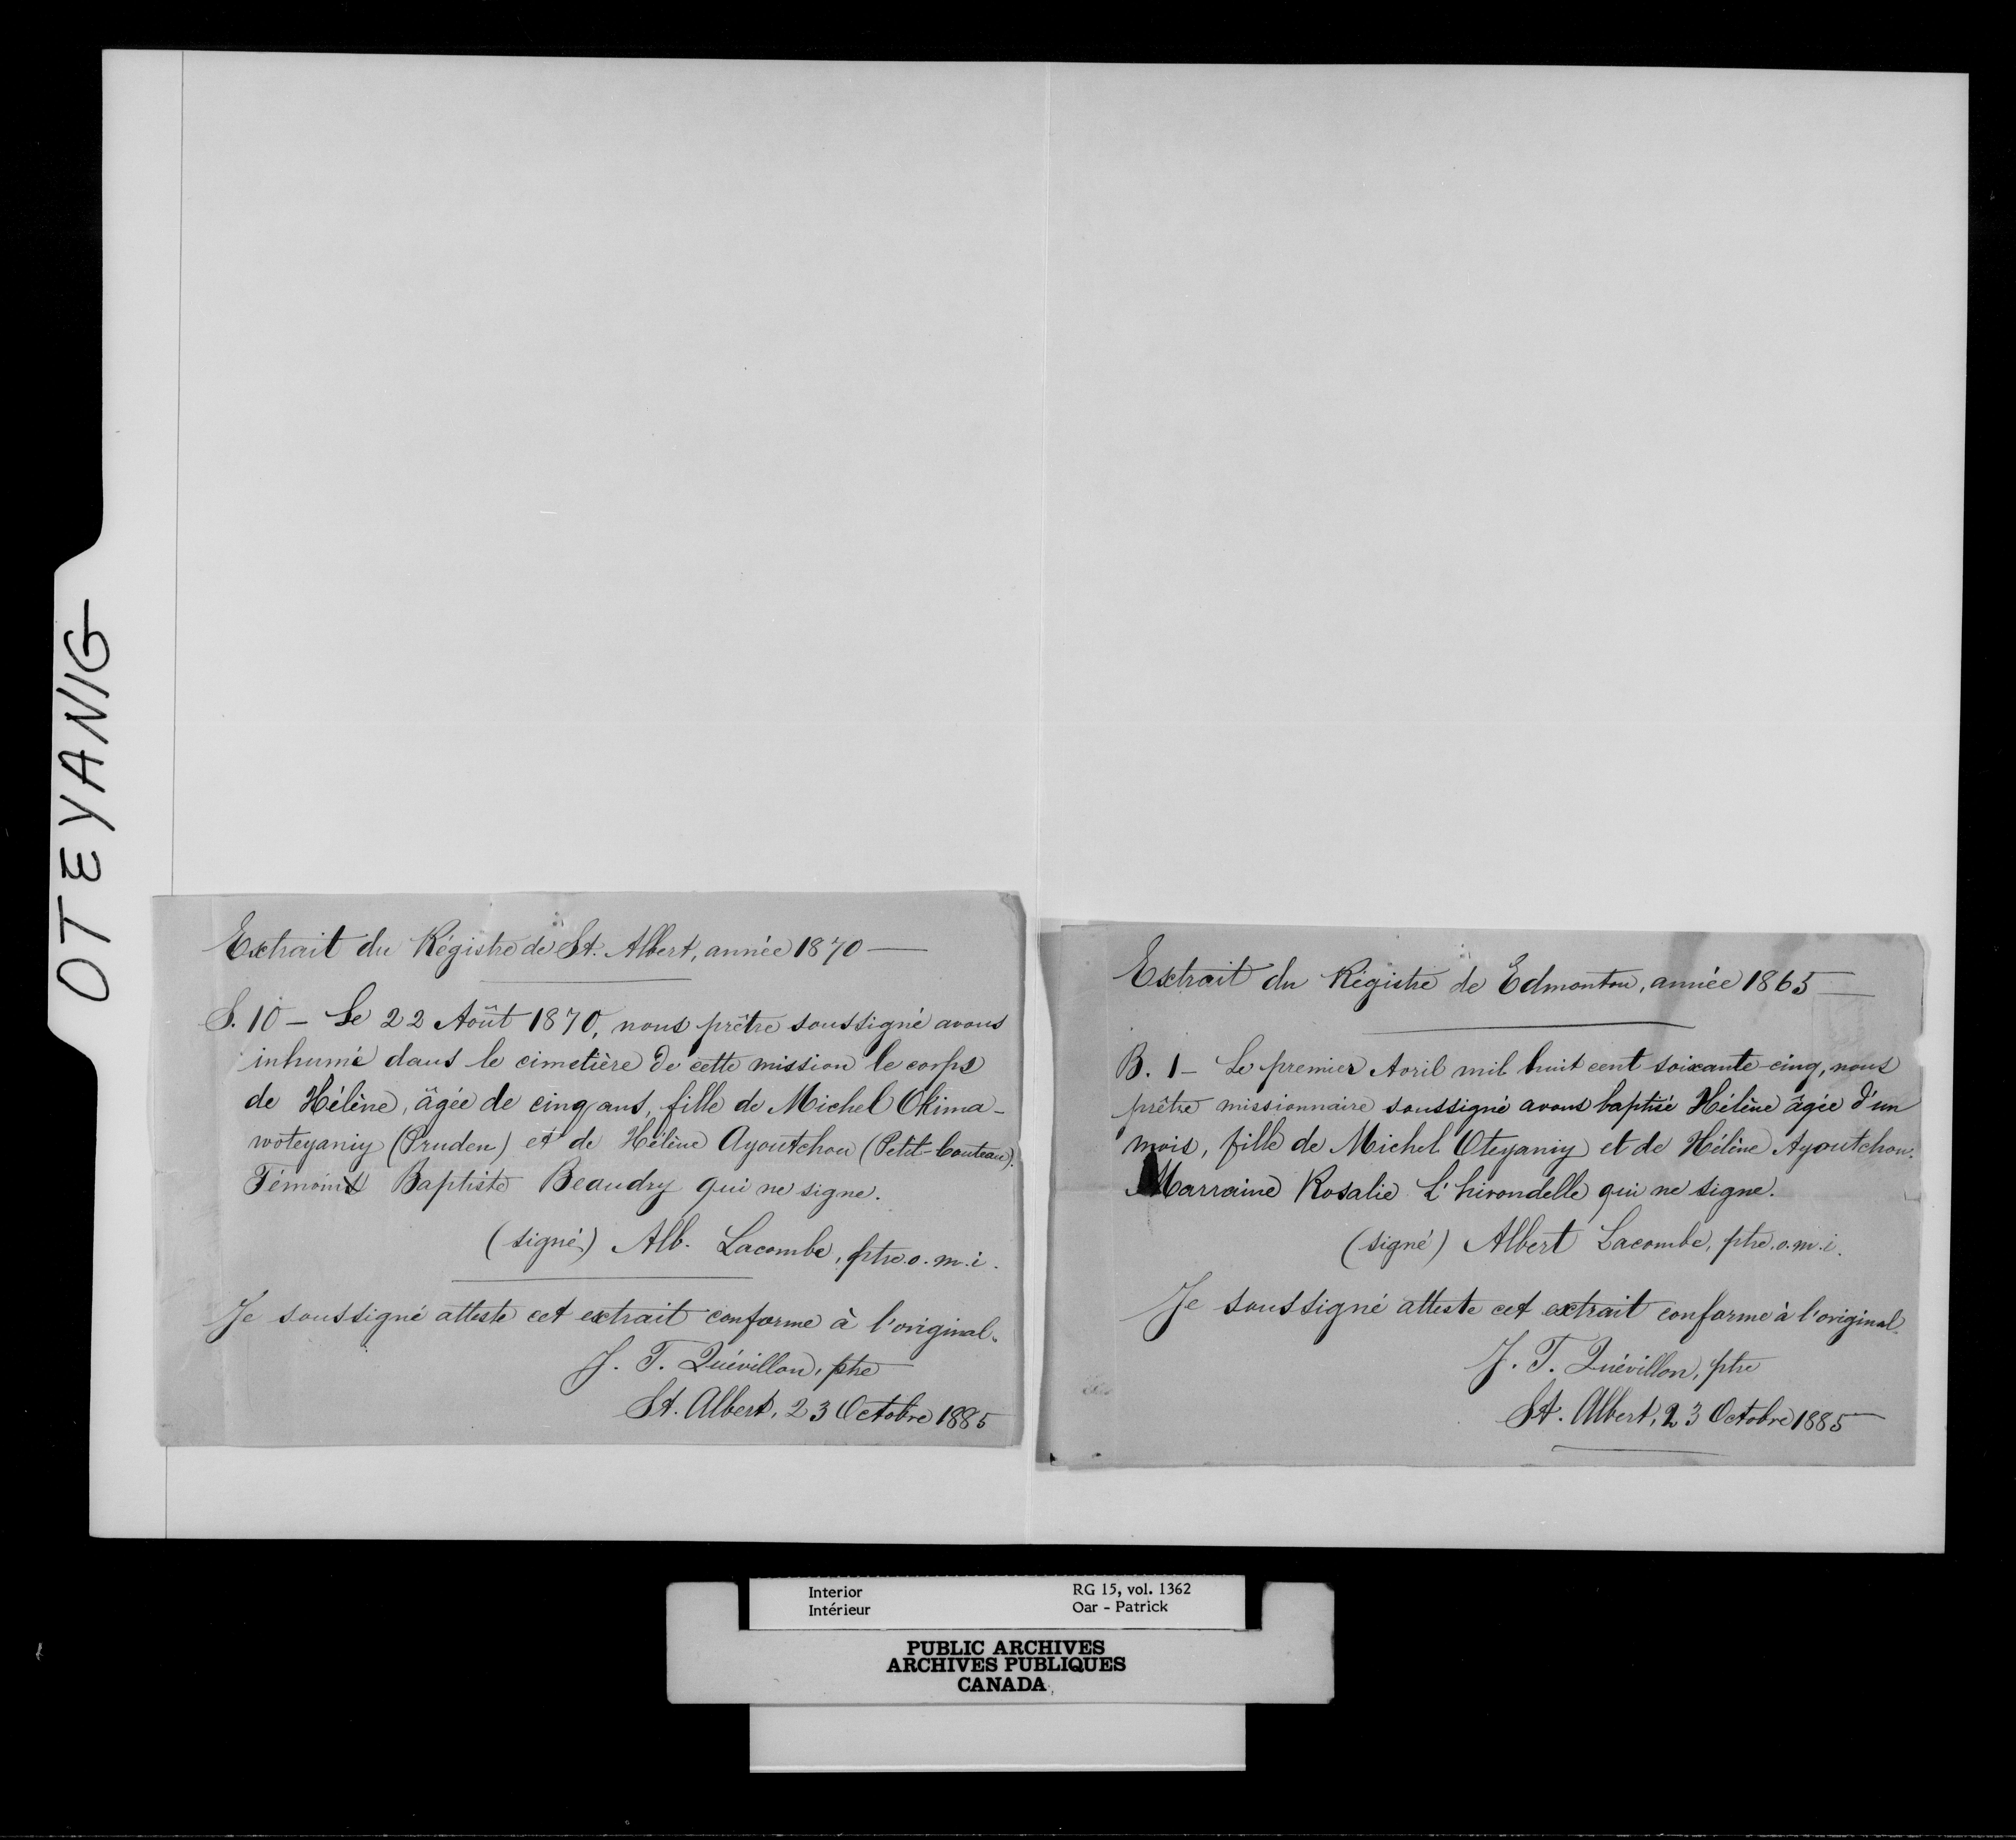 OTEYANIG
Extrait du Régistre de St. Albert, année 1870 —
S. 10 — Le 22 Août 1870, nous prêtre soussigné avons
inhumé dans le cimetière de cette mission le corps
de Hélène, âgée de cinq ans, fille de Michel Okima-
woteyaniy (Pruden) et de Hélène Ayoutchou (Petit-Couteau).
Témoins Baptiste Beaudry qui ne signe.
(signé) Alb. Lacombe, ptre. o. m. i.
Je soussigné atteste cet extrait conforme à l'original.
J. T. Quévillon, ptre
St. Albert, 23 Octobre 1885
Extrait du Régistre de Edmonton, année 1865 —
B. 1 — Le premier Avril mil huit cent soixante-cinq, nous
prêtre missionnaire soussigné avons baptisé Hélène âgée d'un
mois, fille de Michel Oteyaniy et de Hélène Ayoutchou.
Marraine Rosalie L'hirondelle qui ne signe.
(signé) Albert Lacombe, ptre. o. m. i.
Je soussigné atteste cet extrait conforme à l'original.
J. T. Quévillon, ptre
St. Albert, 23 Octobre 1885
Interior RG 15, vol. 1362
Intérieur Oar - Patrick
PUBLIC ARCHIVES
ARCHIVES PUBLIQUES
CANADA